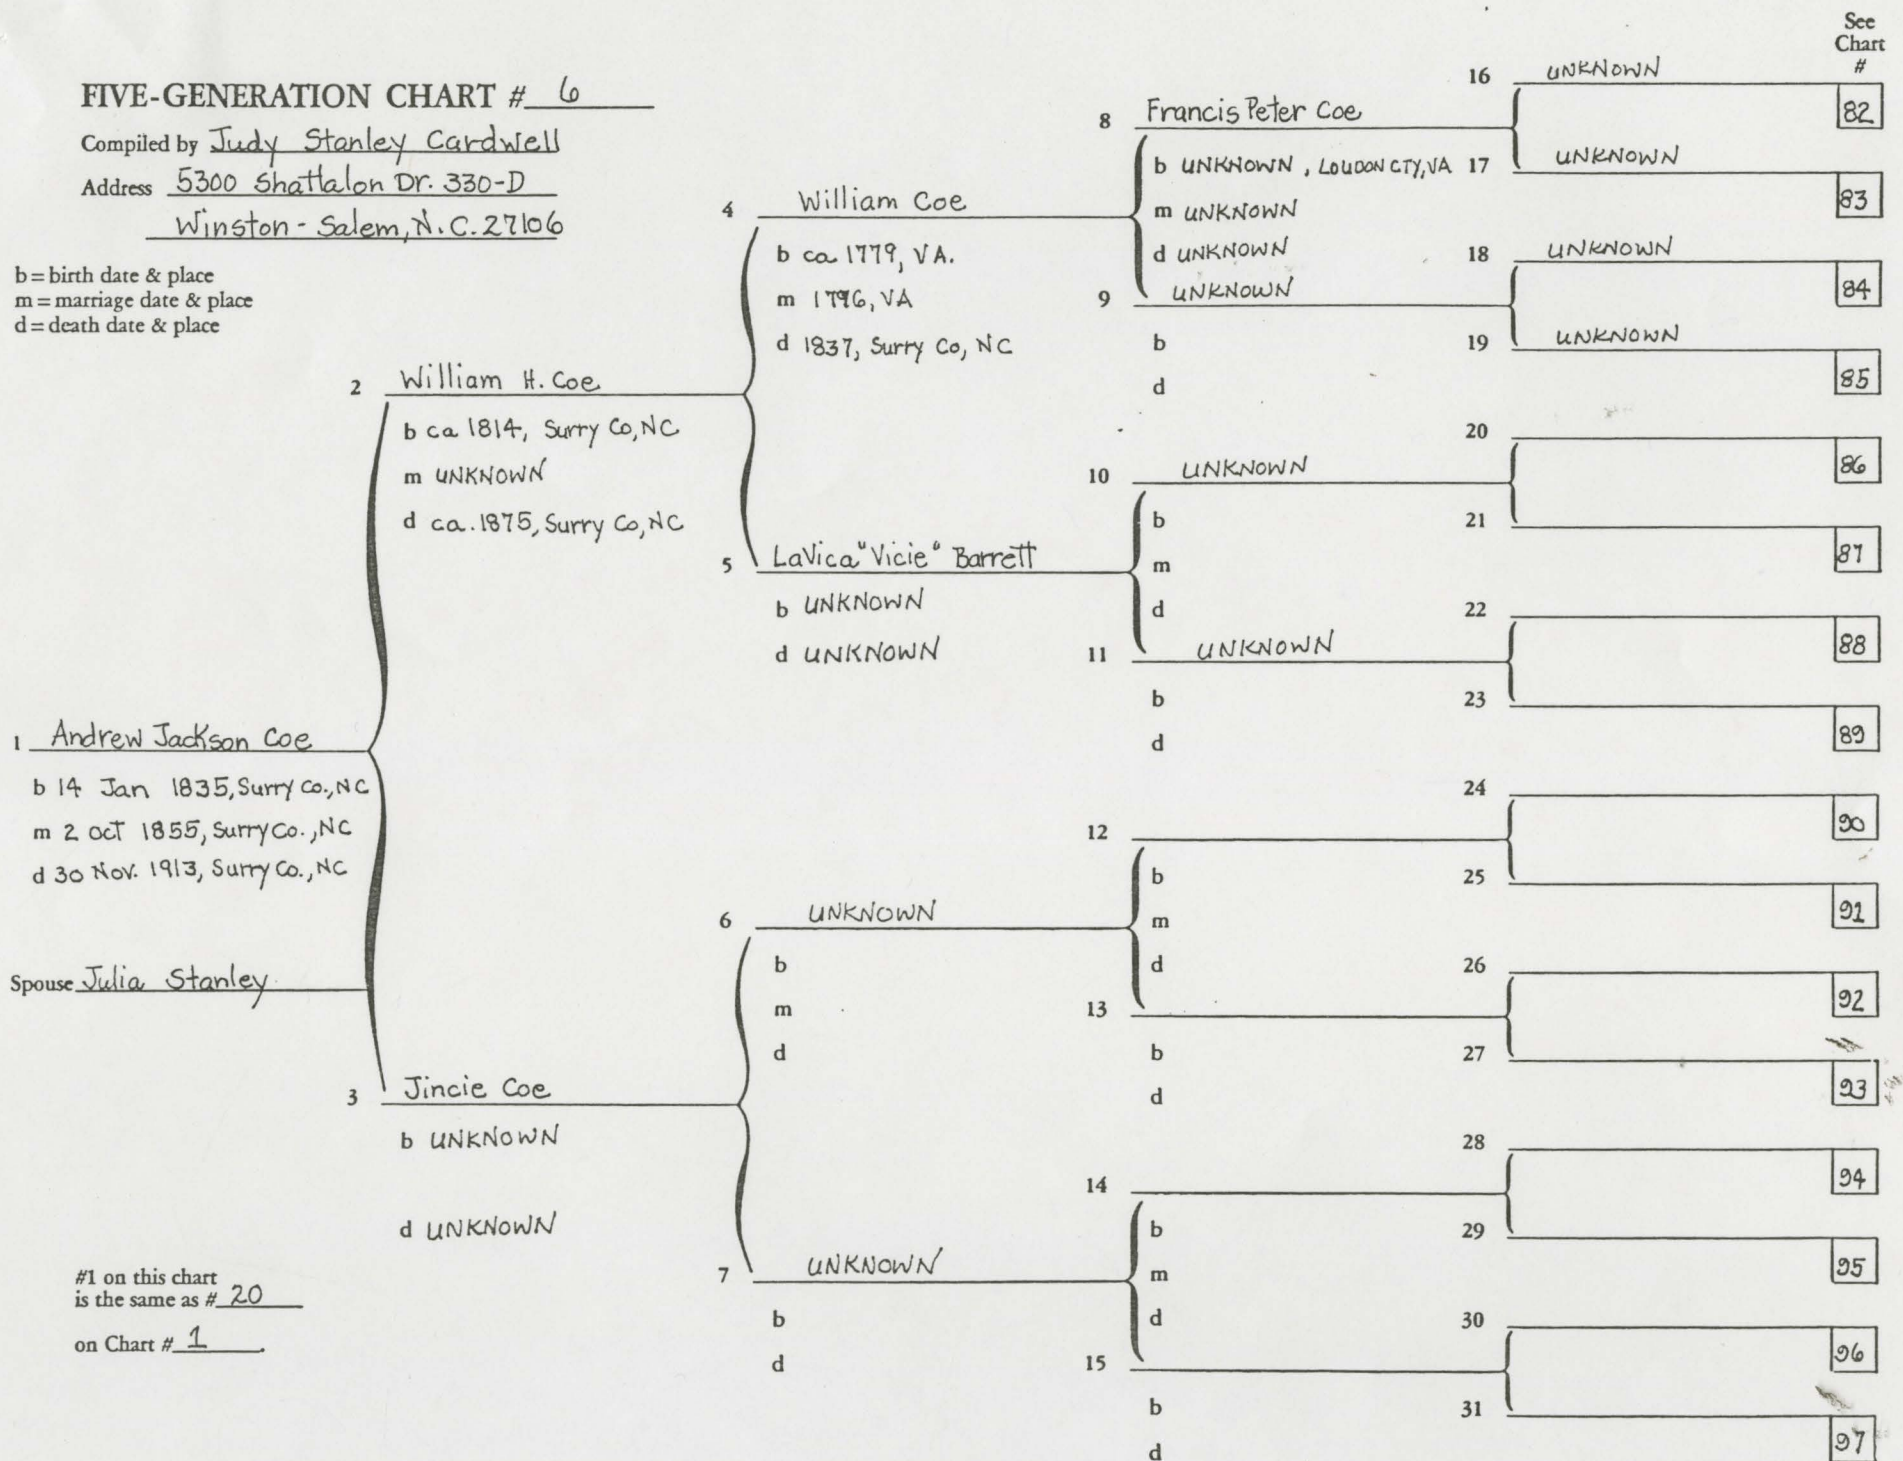 See
Chart
#
FIVE-GENERATION CHART # 6
Compiled by Judy Stanley Cardwell
Address 5300 Shattalon Dr. 330-D
Winston-Salem, N.C. 27106
b = birth date & place
m = marriage date & place
d = death date & place
1 Andrew Jackson Coe
b 14 Jan 1835, Surry Co., NC
m 2 Oct 1855, Surry Co., NC
d 30 Nov. 1913, Surry Co., NC
Spouse Julia Stanley
#1 on this chart
is the same as # 20
on Chart # 1.
2 William H. Coe
b ca 1814, Surry Co, NC
m UNKNOWN
d ca. 1875, Surry Co, NC
3 Jincie Coe
b UNKNOWN
d UNKNOWN
4 William Coe
b ca 1779, VA.
m 1796, VA
d 1837, Surry Co, NC
5 LaVica "Vicie" Barrett
b UNKNOWN
d UNKNOWN
6 UNKNOWN
b
m
d
7 UNKNOWN
b
d
8 Francis Peter Coe
b UNKNOWN, LOUDON CTY, VA
m UNKNOWN
d UNKNOWN
9 UNKNOWN
b
d
10 UNKNOWN
b
m
d
11 UNKNOWN
b
d
12
b
m
d
13
b
d
14
b
m
d
15
b
d
16 UNKNOWN
82
17 UNKNOWN
83
18 UNKNOWN
84
19 UNKNOWN
85
20
86
21
87
22
88
23
89
24
90
25
91
26
92
27
93
28
94
29
95
30
96
31
97